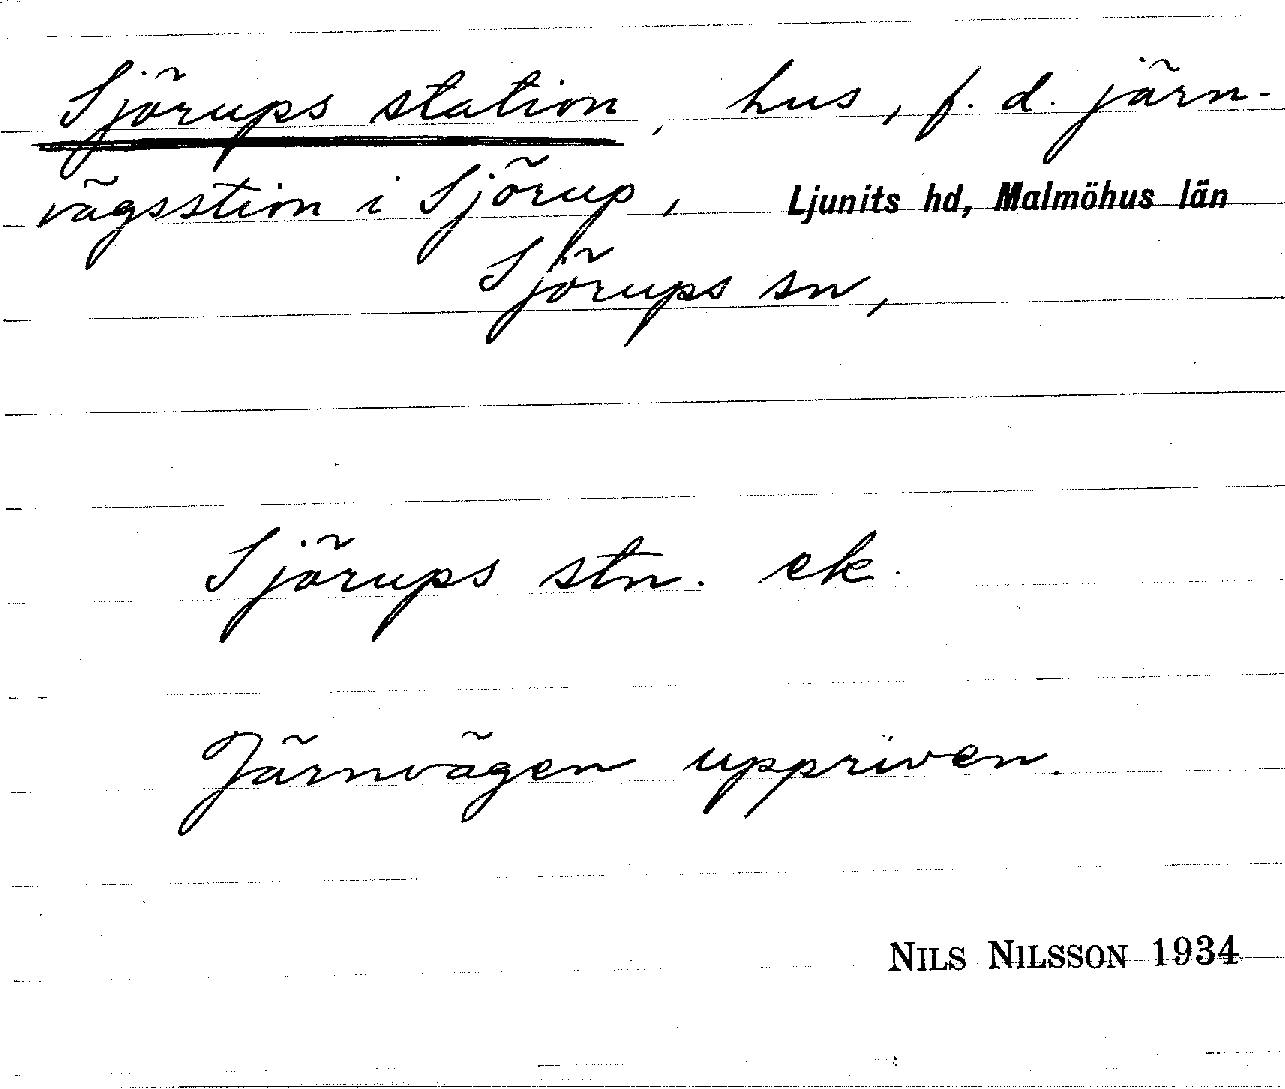 Sjörups station, hus, f. d. järn-
vägsstion i Sjörup, Ljunits hd, Malmöhus län
Sjörups sn,
Sjörups stn. ek.
Järnvägen uppriven.
NILS NILSSON 1934